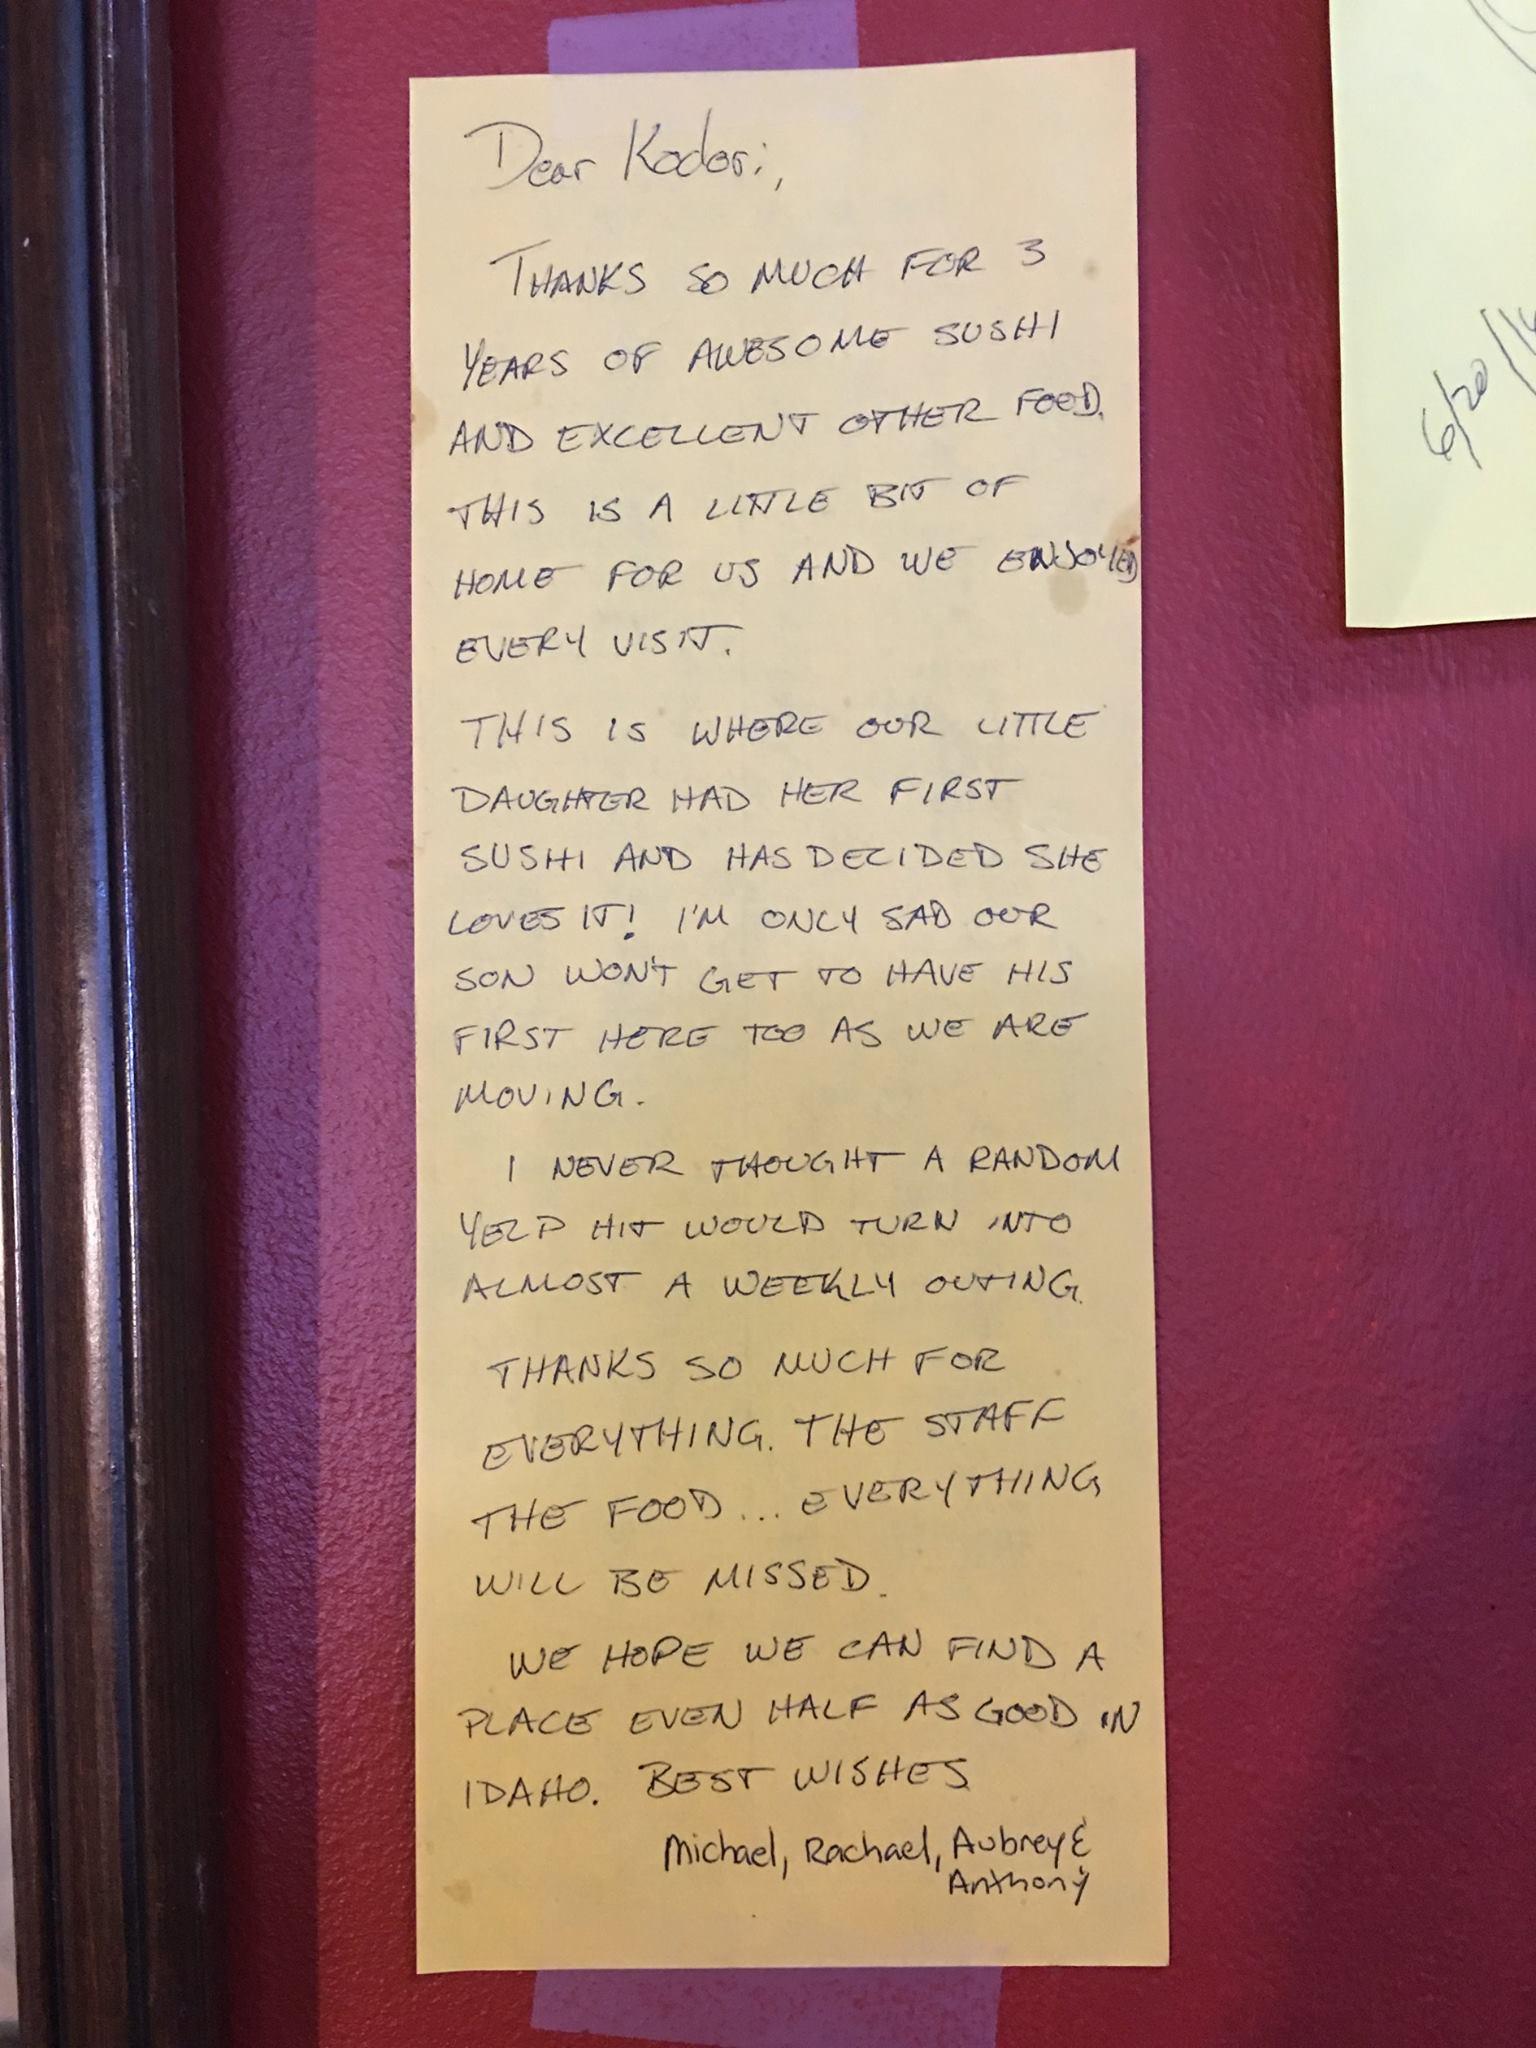 Dear Kodori,
THANKS SO MUCH FOR 3
YEARS OF AWESOME SUSHI
AND EXCELLENT OTHER FOOD.
THIS IS A LITTLE BIT OF
HOME FOR US AND WE ENJOYED
EVERY VISIT.
THIS IS WHERE OUR LITTLE
DAUGHTER HAD HER FIRST
SUSHI AND HAS DECIDED SHE
LOVES IT! I'M ONLY SAD OUR
SON WON'T GET TO HAVE HIS
FIRST HERE TOO AS WE ARE
MOVING.
I NEVER THOUGHT A RANDOM
YELP HIT WOULD TURN INTO
ALMOST A WEEKLY OUTING.
THANKS SO MUCH FOR
EVERYTHING. THE STAFF
THE FOOD... EVERYTHING
WILL BE MISSED.
WE HOPE WE CAN FIND A
PLACE EVEN HALF AS GOOD IN
IDAHO. BEST WISHES
Michael, Rachael, Aubrey &
Anthony
6/20/